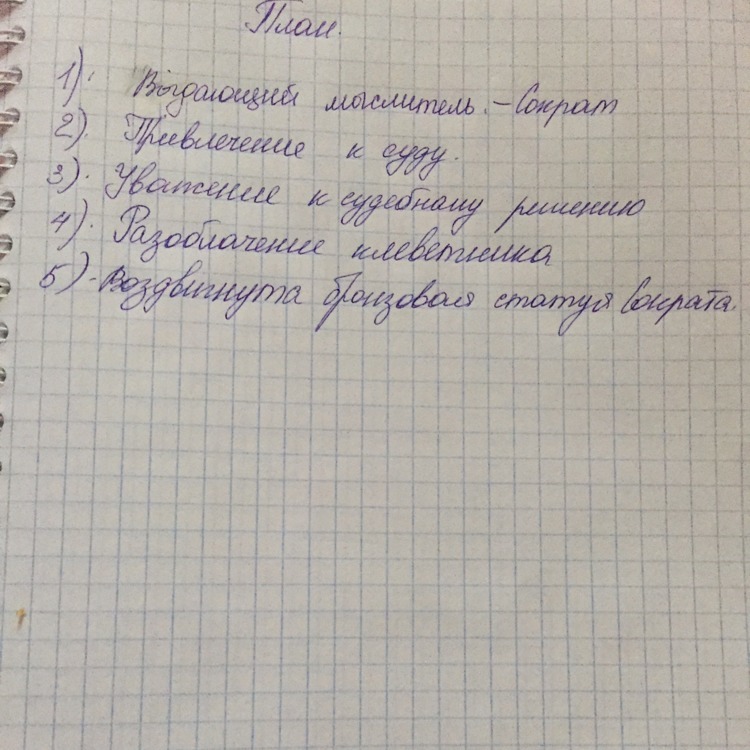 План.
1). Выдающий мыслитель. – Сократ
2). Привлечение к суду.
3). Уважение к судебному решению
4). Разоблачение клеветника
5) - Воздвигнута бронзовая статуя Сократа.